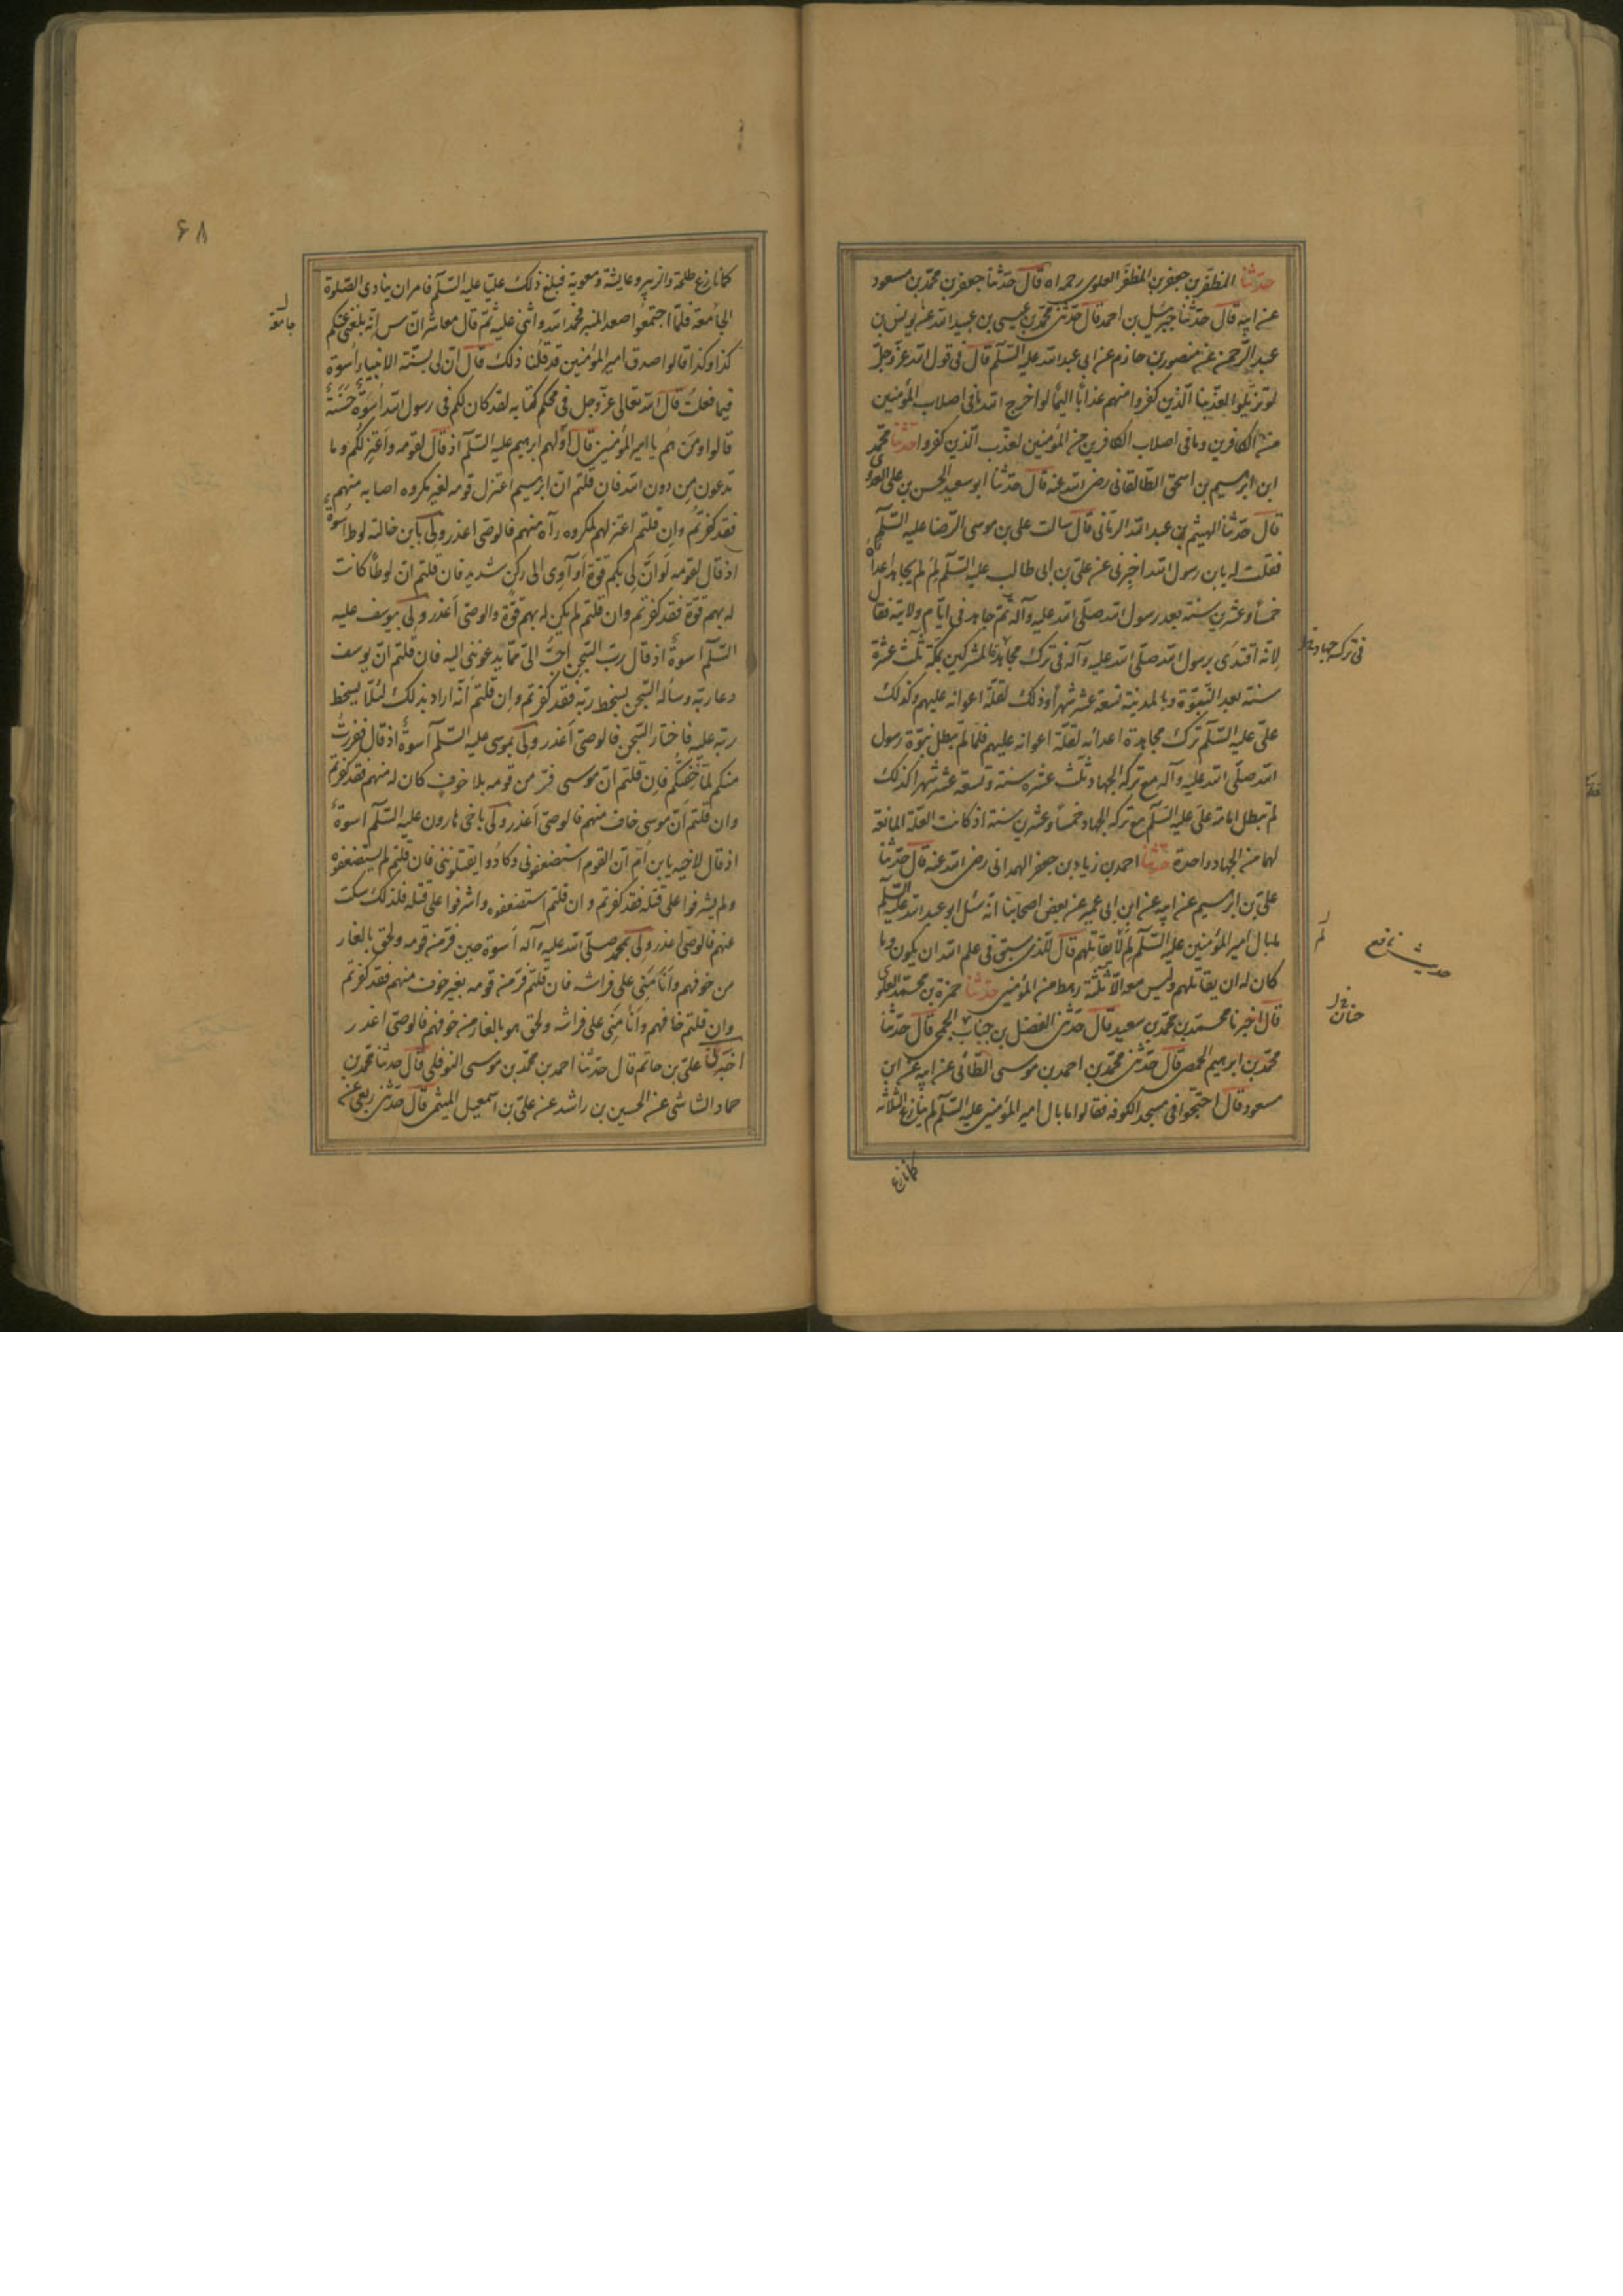 حدثنا المظفر بن جعفر بن المظفر العلوى رحمه الله قال حدثنا جعفر بن محمد بن مسعود
عن ابيه قال حدثنا جبرئيل بن احمد قال حدثنى محمد بن عيسى بن عبيد الله عن يونس بن
عبد الرحمن عن منصور بن حازم عن ابى عبد الله عليه السلم قال فى قول الله عز وجل
لو تزيلوا لعذبنا الذين كفروا منهم عذابًا اليمًا لو اخرج الله ما فى اصلاب المؤمنين
من الكافرين وما فى اصلاب الكافرين من المؤمنين لعذب الذين كفروا حدثنا محمد
ابن ابرهيم بن اسحق الطالقانى رضى الله عنه قال حدثنا ابو سعيد الحسن بن على العدوى
قال حدثنا الهيثم بن عبد الله الرمانى قال سالت على بن موسى الرضا عليه السلم
فقلت له يا بن رسول الله اخبرنى عن على بن ابى طالب عليه السلم لِمَ لم يجاهد اعداه
خمسًا وعشرين سنة بعد رسول الله صلى الله عليه وآله ثم جاهد فى ايام ولايته فقال
لانه اقتدى برسول الله صلى الله عليه وآله فى ترك مجاهدة المشركين بمكة ثلث عشرة
سنة بعد النبوّة وبالمدينة تسعة عشر شهرًا وذلك لقلة اعوانه عليهم وكذلك
على عليه السلم ترك مجاهدة اعدائه لقلة اعوانه عليهم فلما لم تبطل نبوّة رسول
الله صلى الله عليه وآله مع تركه الجهاد ثلث عشره سنة وتسعة عشر شهرا كذلك
لم تبطل امامة على عليه السلم مع تركه الجهاد خمسًا وعشرين سنة اذ كانت العلة المانعة
لهما من الجهاد واحدة حدثنا احمد بن زياد بن جعفر الهمدانى رضى الله عنه قال حدثنا
على بن ابرهيم عن ابيه عن ابن ابى عمير عن بعض اصحابنا انه سئل ابو عبد الله عليه السلم
ما بال امير المؤمنين عليه السلم لم لا يقاتلهم قال للذى سبق فى علم الله ان يكون وما
كان له ان يقاتلهم وليس معه الا ثلثة رهط من المؤمنين حدثنا حمزة بن محمد العلوى
قال اخبرنا محمد بن محمد بن سعيد قال حدثنى الفضل بن حباب الجمحى قال حدثنا
محمد بن ابرهيم الحمصى قال حدثنى محمد بن احمد بن موسى الطائى عن ابيه عن ابن
مسعود قال احتجوا فى مسجد الكوفه فقالوا ما بال امير المؤمنين عليه السلم لم ينازع الثلاثة
كما نازع
فى تركه جهاد
لم
حديث نافع
جنان
۶۸
كما نازع طلحة والزبير وعايشة ومعوية فبلغ ذلك عليّا عليه السلم فامر ان ينادى الصلوة
الجامعة فلما اجتمعوا صعد المنبر فحمد الله واثنى عليه ثم قال معاشر الناس انه بلغنى عنكم
كذا وكذا قالوا صدق امير المؤمنين قد قلنا ذلك قال ان لى بسنّة الانبياء اُسوة
فيما فعلت قال الله تعالى عز وجل فى محكم كتابه لقد كان لكم فى رسول الله اُسوَةٌ حَسَنَةٌ
قالوا ومَن هُم يا امير المؤمنين قال اوّلهم ابرهيم عليه السلم اذ قال لقومه واَعتزِلُكُم وما
تدعون مِن دون الله فان قلتم ان ابرهيم اعتزل قومه لغير مكروه اصابه منهم
فقد كفرتم وان قلتم اعتزلهم لمكروه رآه منهم فالوصى اعذر ولى بابن خالته لوط اسوة
اذ قال لقومه لَو اَنّ لى بكم قوّة اَو آوى الى ركنٍ شديد فان قلتم ان لوطًا كانت
له بهم قوّة فقد كفرتم وان قلتم لم يكن له بهم قوّة والوصى اَعذر ولى بيوسف عليه
السلم اسوةٌ اذ قال ربّ السّجنُ احبّ الىّ مما يدعوننى اليه فان قلتم انّ يوسف
دعا ربّه وسأله السّجن بسخط ربّه فقد كفرتم وان قلتم انّه اراد بذلك لئلّا يسخط
ربّه عليه فاختار السّجن فالوصى اَعذر ولى بموسى عليه السلم اسوةٌ اذ قال ففررتُ
منكم لمّا خِفتُكُم فان قلتم انّ موسى فرّ من قومه بلا خوفٍ كان له منهم فقد كفرتم
وان قلتم انّ موسى خاف منهم فالوصى اَعذر ولى باخى هارون عليه السلم اسوةٌ
اذ قال لاخيه يابن اُمّ انّ القوم استضعفونى وكادُوا يقتلوننى فان قلتم لم يستضعفوه
ولم يشرفوا على قتله فقد كفرتم وان قلتم استضعفوه واشرفوا على قتله فلذلك سكت
عنهم فالوصى اعذر ولى بمحمد صلى الله عليه وآله اُسوة حين فرّ من قومه ولحق بالغار
من خوفهم واَنامَنِى على فراشه فان قلتم فرّ من قومه بغير خوف منهم فقد كفرتم
وان قلتم خافهم واَنامَنِى على فراشه ولحق هو بالغار من خوفهم فالوصى اعذر
اخبرنى علىّ بن حاتم قال حدثنا احمد بن محمد بن موسى النوفلى قال حدثنا محمد بن
حماد الشاشى عن الحسين بن راشد عن على بن اسمعيل الميثمى قال حدثنى ربعى عن
جامعة